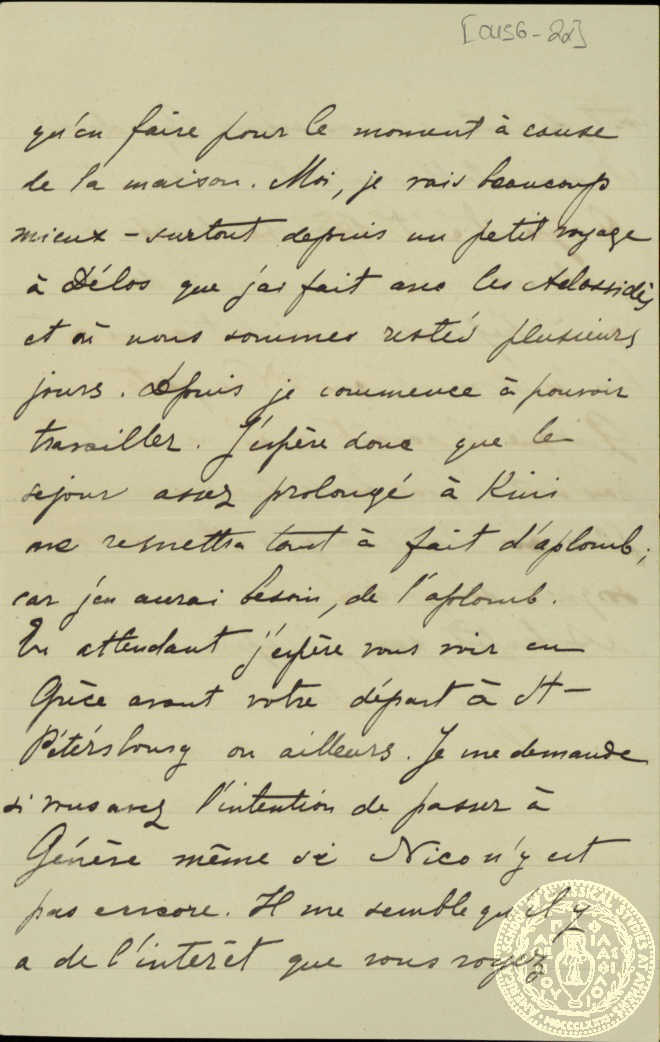 [0156-22]
qu'en faire pour le moment à cause
de la maison. Moi, je vais beaucoup
mieux – surtout depuis un petit voyage
à Délos que j'ai fait avec les
et où nous sommes restés plusieurs
jours. Depuis je commence à pouvoir
travailler. J'espère donc que le
séjour assez prolongé à
me remettra tout à fait d'aplomb ;
car j'en aurai besoin, de l'aplomb.
En attendant j'espère vous voir en
Grèce avant votre départ à St –
Pétérsbourg ou ailleurs. Je me demande
si vous avez l'intention de passer à
Génève même si Nico n'y est
pas encore. Il me semble qu'il y
a de l'intérêt que vous voyez
AMERICAN SCHOOL OF CLASSICAL STUDIES AT ATHENS
MDCCCLXXXI